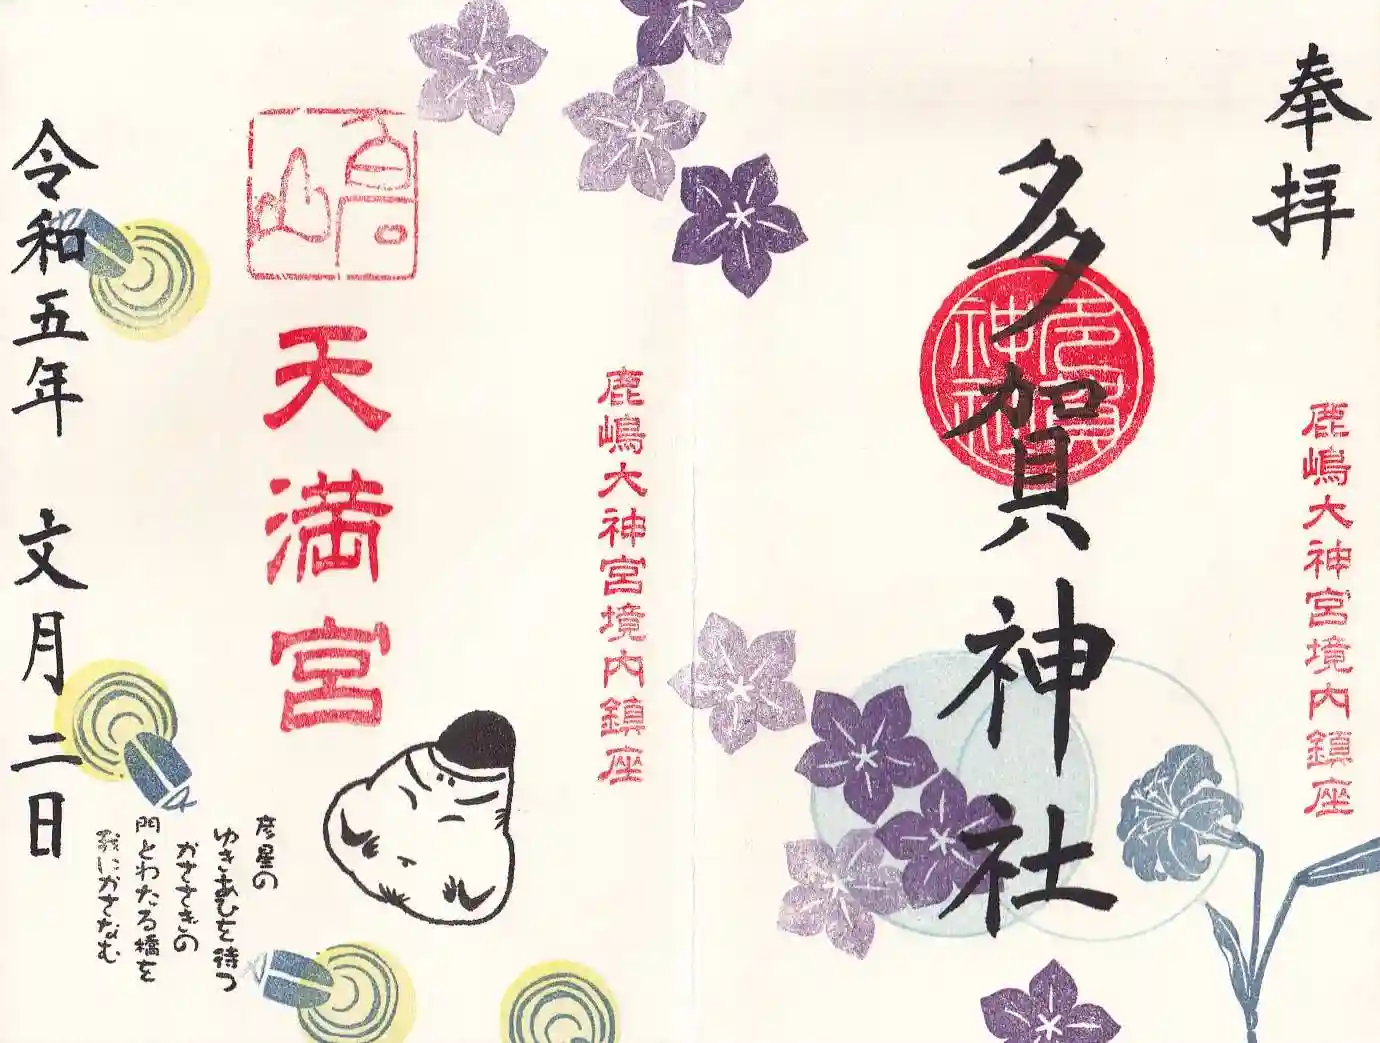 奉拝
鹿嶋大神宮境内鎮座
多賀神社
多賀神社
鹿嶋大神宮境内鎮座
嶋
天満宮
彦星の
ゆきあひを待つ
かささぎの
門とわたる橋を
我にかさなむ
令和五年 文月二日